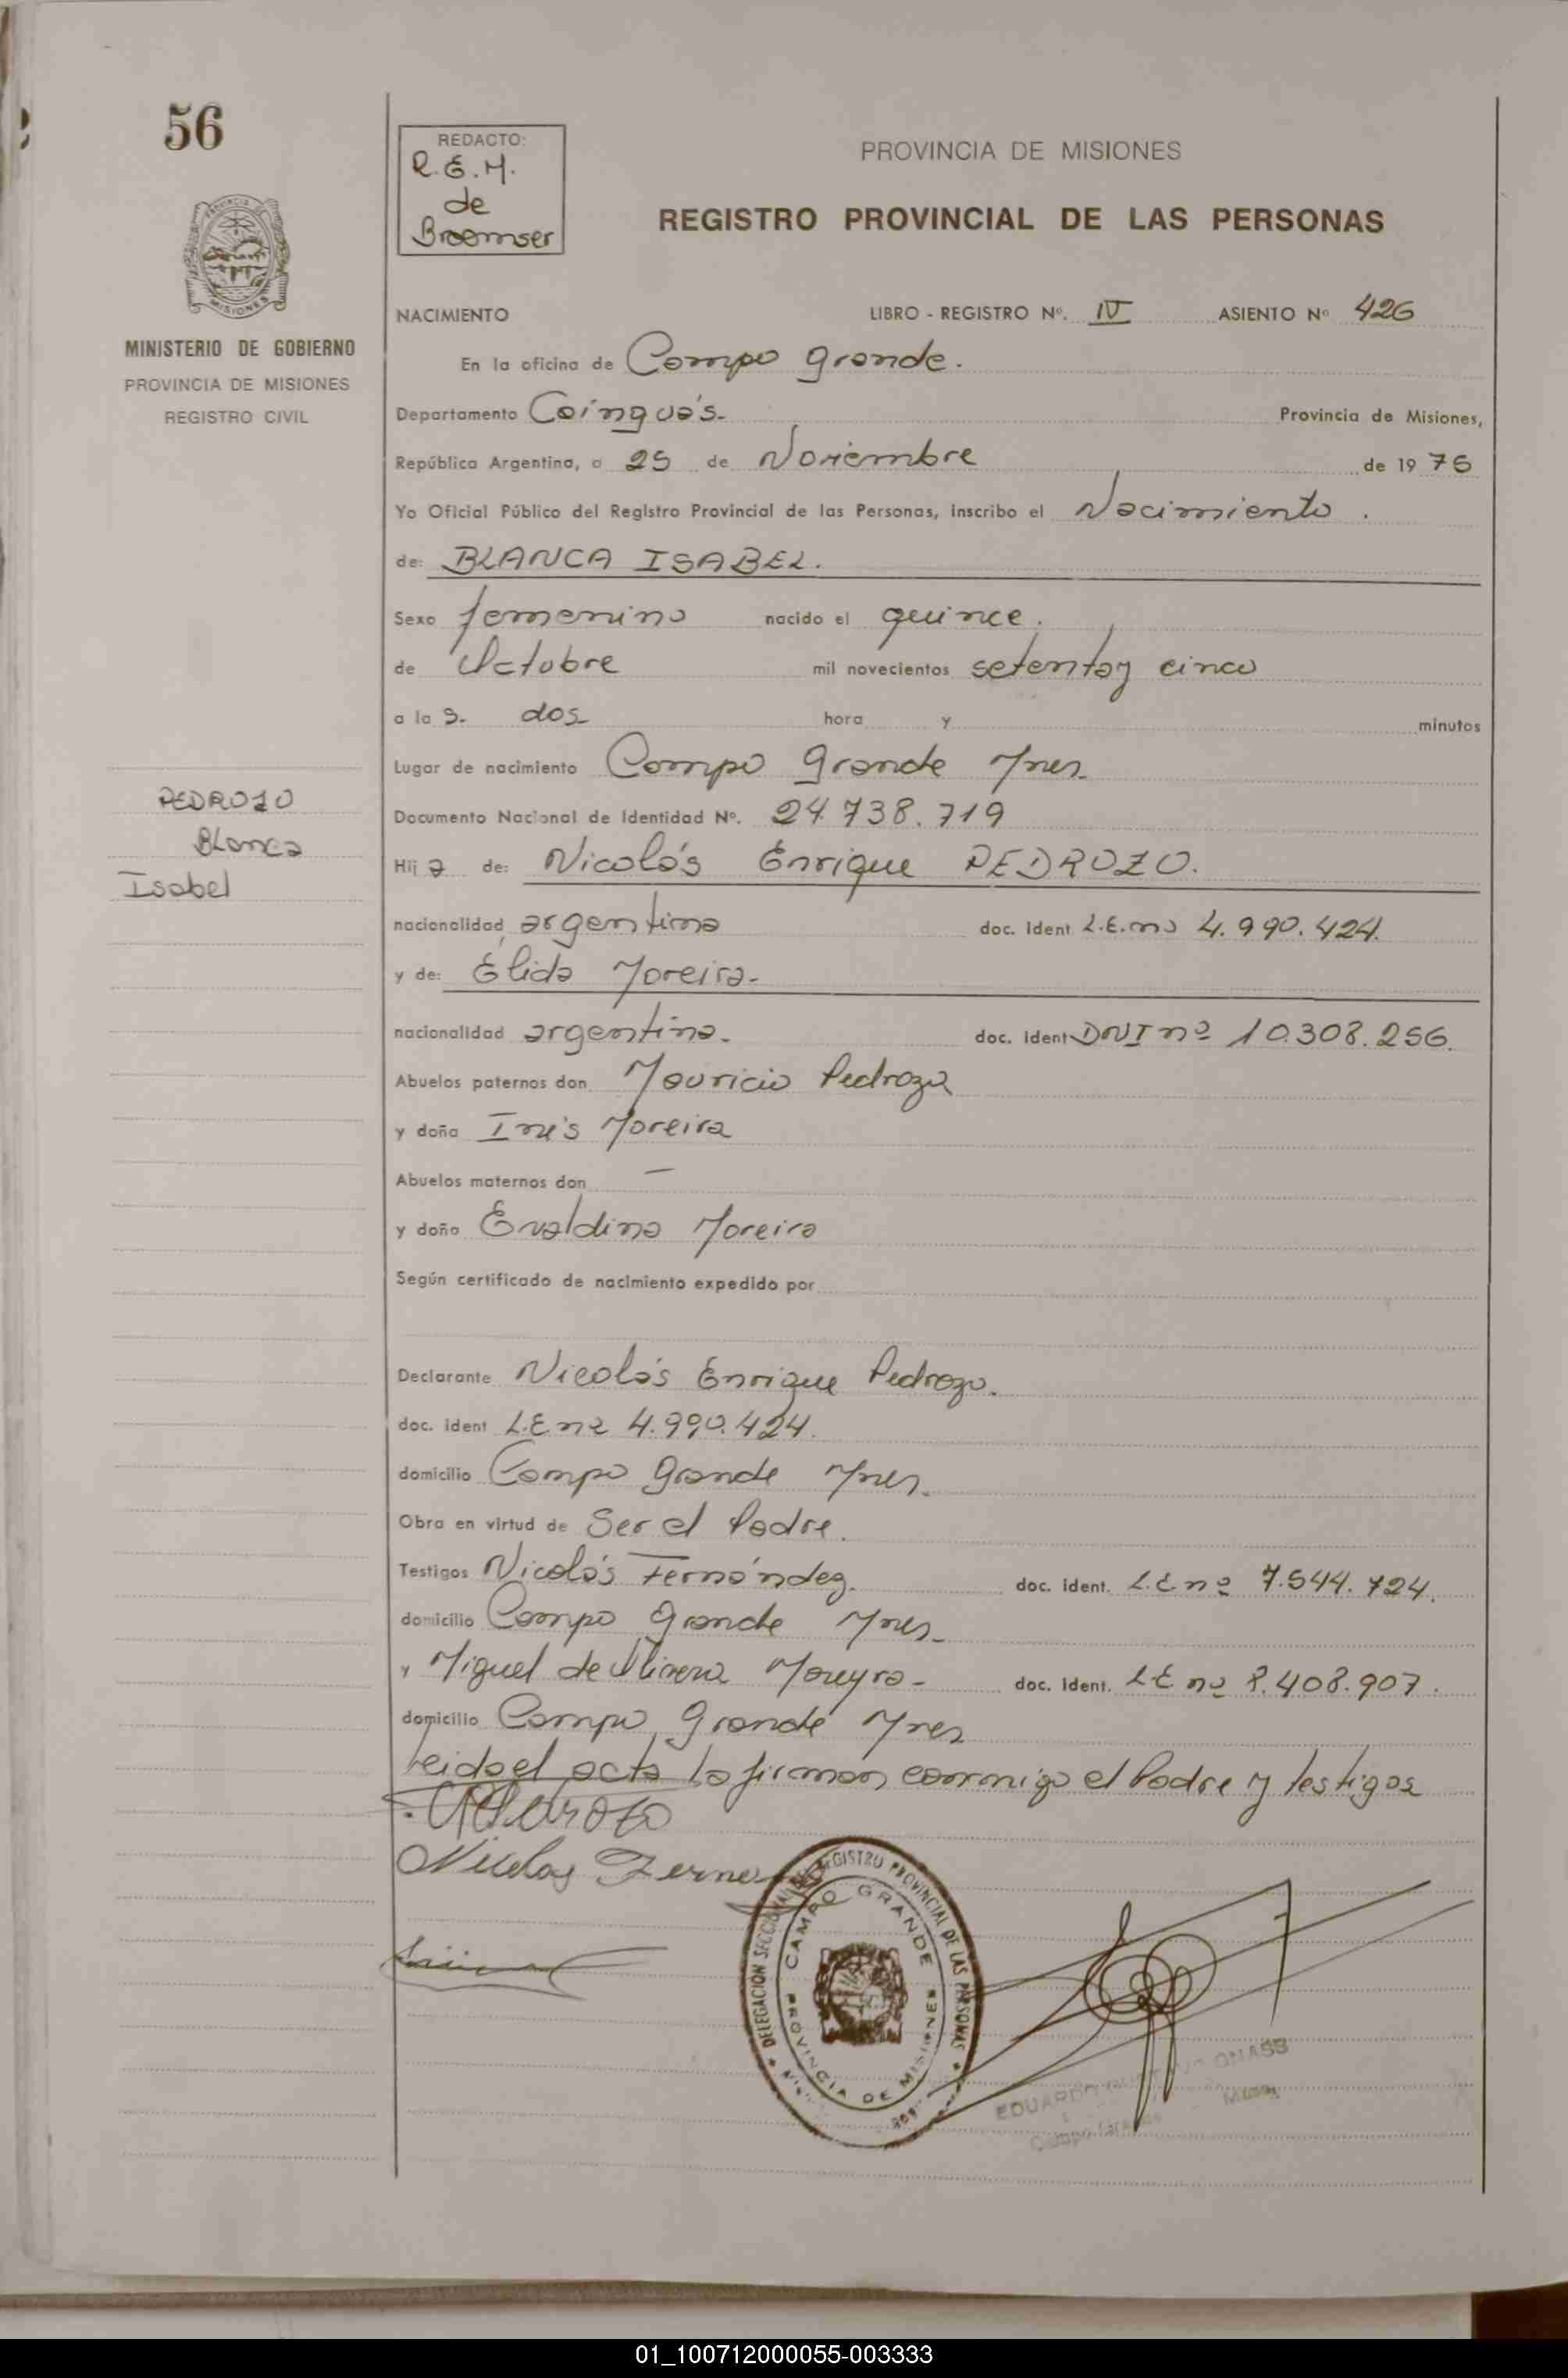 56
REDACTO:
R.E.M.
de
Broemser
PROVINCIA DE MISIONES
REGISTRO PROVINCIAL DE LAS PERSONAS
MINISTERIO DE GOBIERNO
PROVINCIA DE MISIONES
REGISTRO CIVIL
NACIMIENTO LIBRO - REGISTRO Nº. IV ASIENTO Nº 426
En la oficina de Campo Grande.
Departamento Cainguás. Provincia de Misiones,
República Argentina, a 25 de Noviembre de 1975
Yo Oficial Público del Registro Provincial de las Personas, inscribo el Nacimiento.
de: BLANCA ISABEL.
Sexo femenino nacido el quince.
de Octubre mil novecientos setenta y cinco
a las. dos hora y minutos
Lugar de nacimiento Campo Grande Mnes.
Documento Nacional de Identidad Nº. 24.738.719
PEDROZO
Blanca
Isabel
Hija de: Nicolás Enrique PEDROZO.
nacionalidad argentina doc. ident L.E.nº 4.990.424.
y de: Élida Moreira.
nacionalidad argentina. doc. ident DNI nº 10.308.256.
Abuelos paternos don Mauricio Pedrozo
y doña Inés Moreira
Abuelos maternos don —
y doña Evaldina Moreira
Según certificado de nacimiento expedido por
Declarante Nicolás Enrique Pedrozo.
doc. ident L.E nº 4.990.424.
domicilio Campo Grande Mnes.
Obra en virtud de Ser el Padre.
Testigos Nicolás Fernández. doc. ident. L.E nº 7.544.724.
domicilio Campo Grande Mnes.
y Miguel de Olivera Moreyra. doc. ident. L E nº 8.408.907.
domicilio Campo Grande Mnes
Leida el acta la firman conmigo el Padre y testigos
Pedrozo
Nicolas Fernandez
DELEGACION SECCIONAL REGISTRO PROVINCIAL DE LAS PERSONAS
CAMPO GRANDE
PROVINCIA DE MISIONES
EDUARDO
01_100712000055-003333